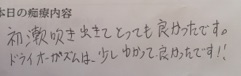 本日の痴療内容
初潮吹き出きてとっても良かったです。
ドライオーガズムは、少しゆかって良かったです!!